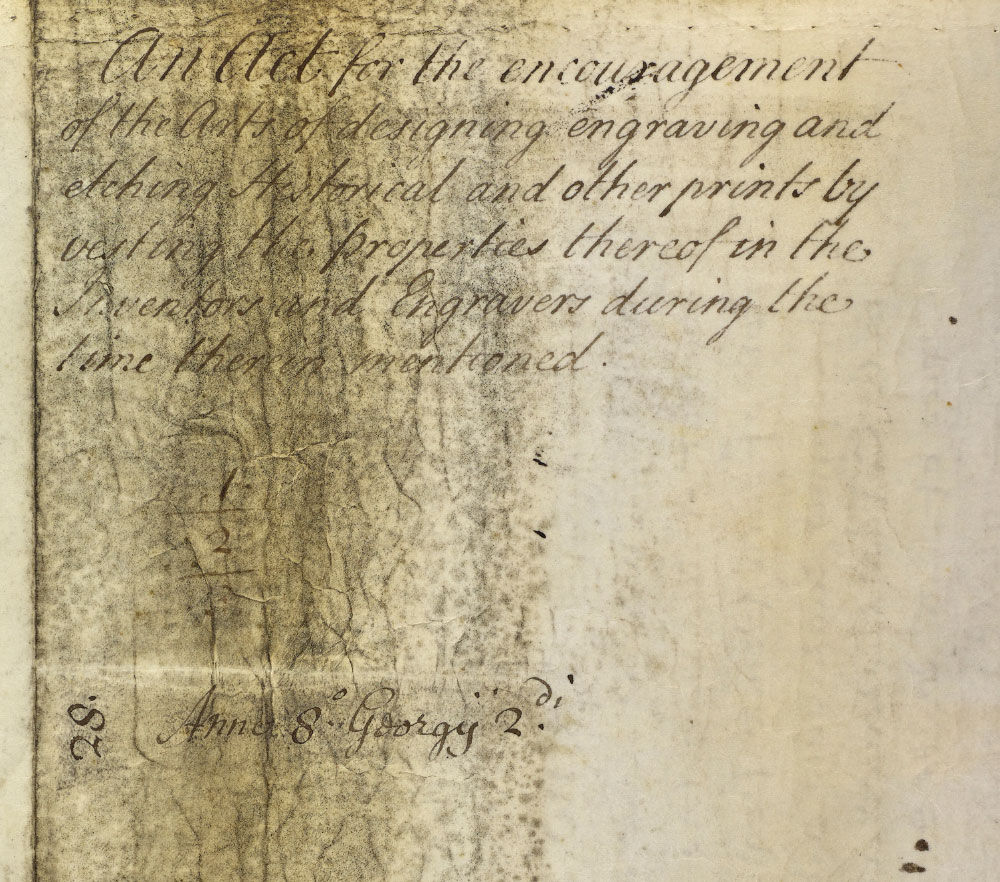 An Act for the encouragement
of the Arts of designing engraving and
etching Historical and other prints by
vesting the properties thereof in the
Inventors and Engravers during the
time therein mentioned.
1
2
Anno 8.º Georgij 2.di
28.